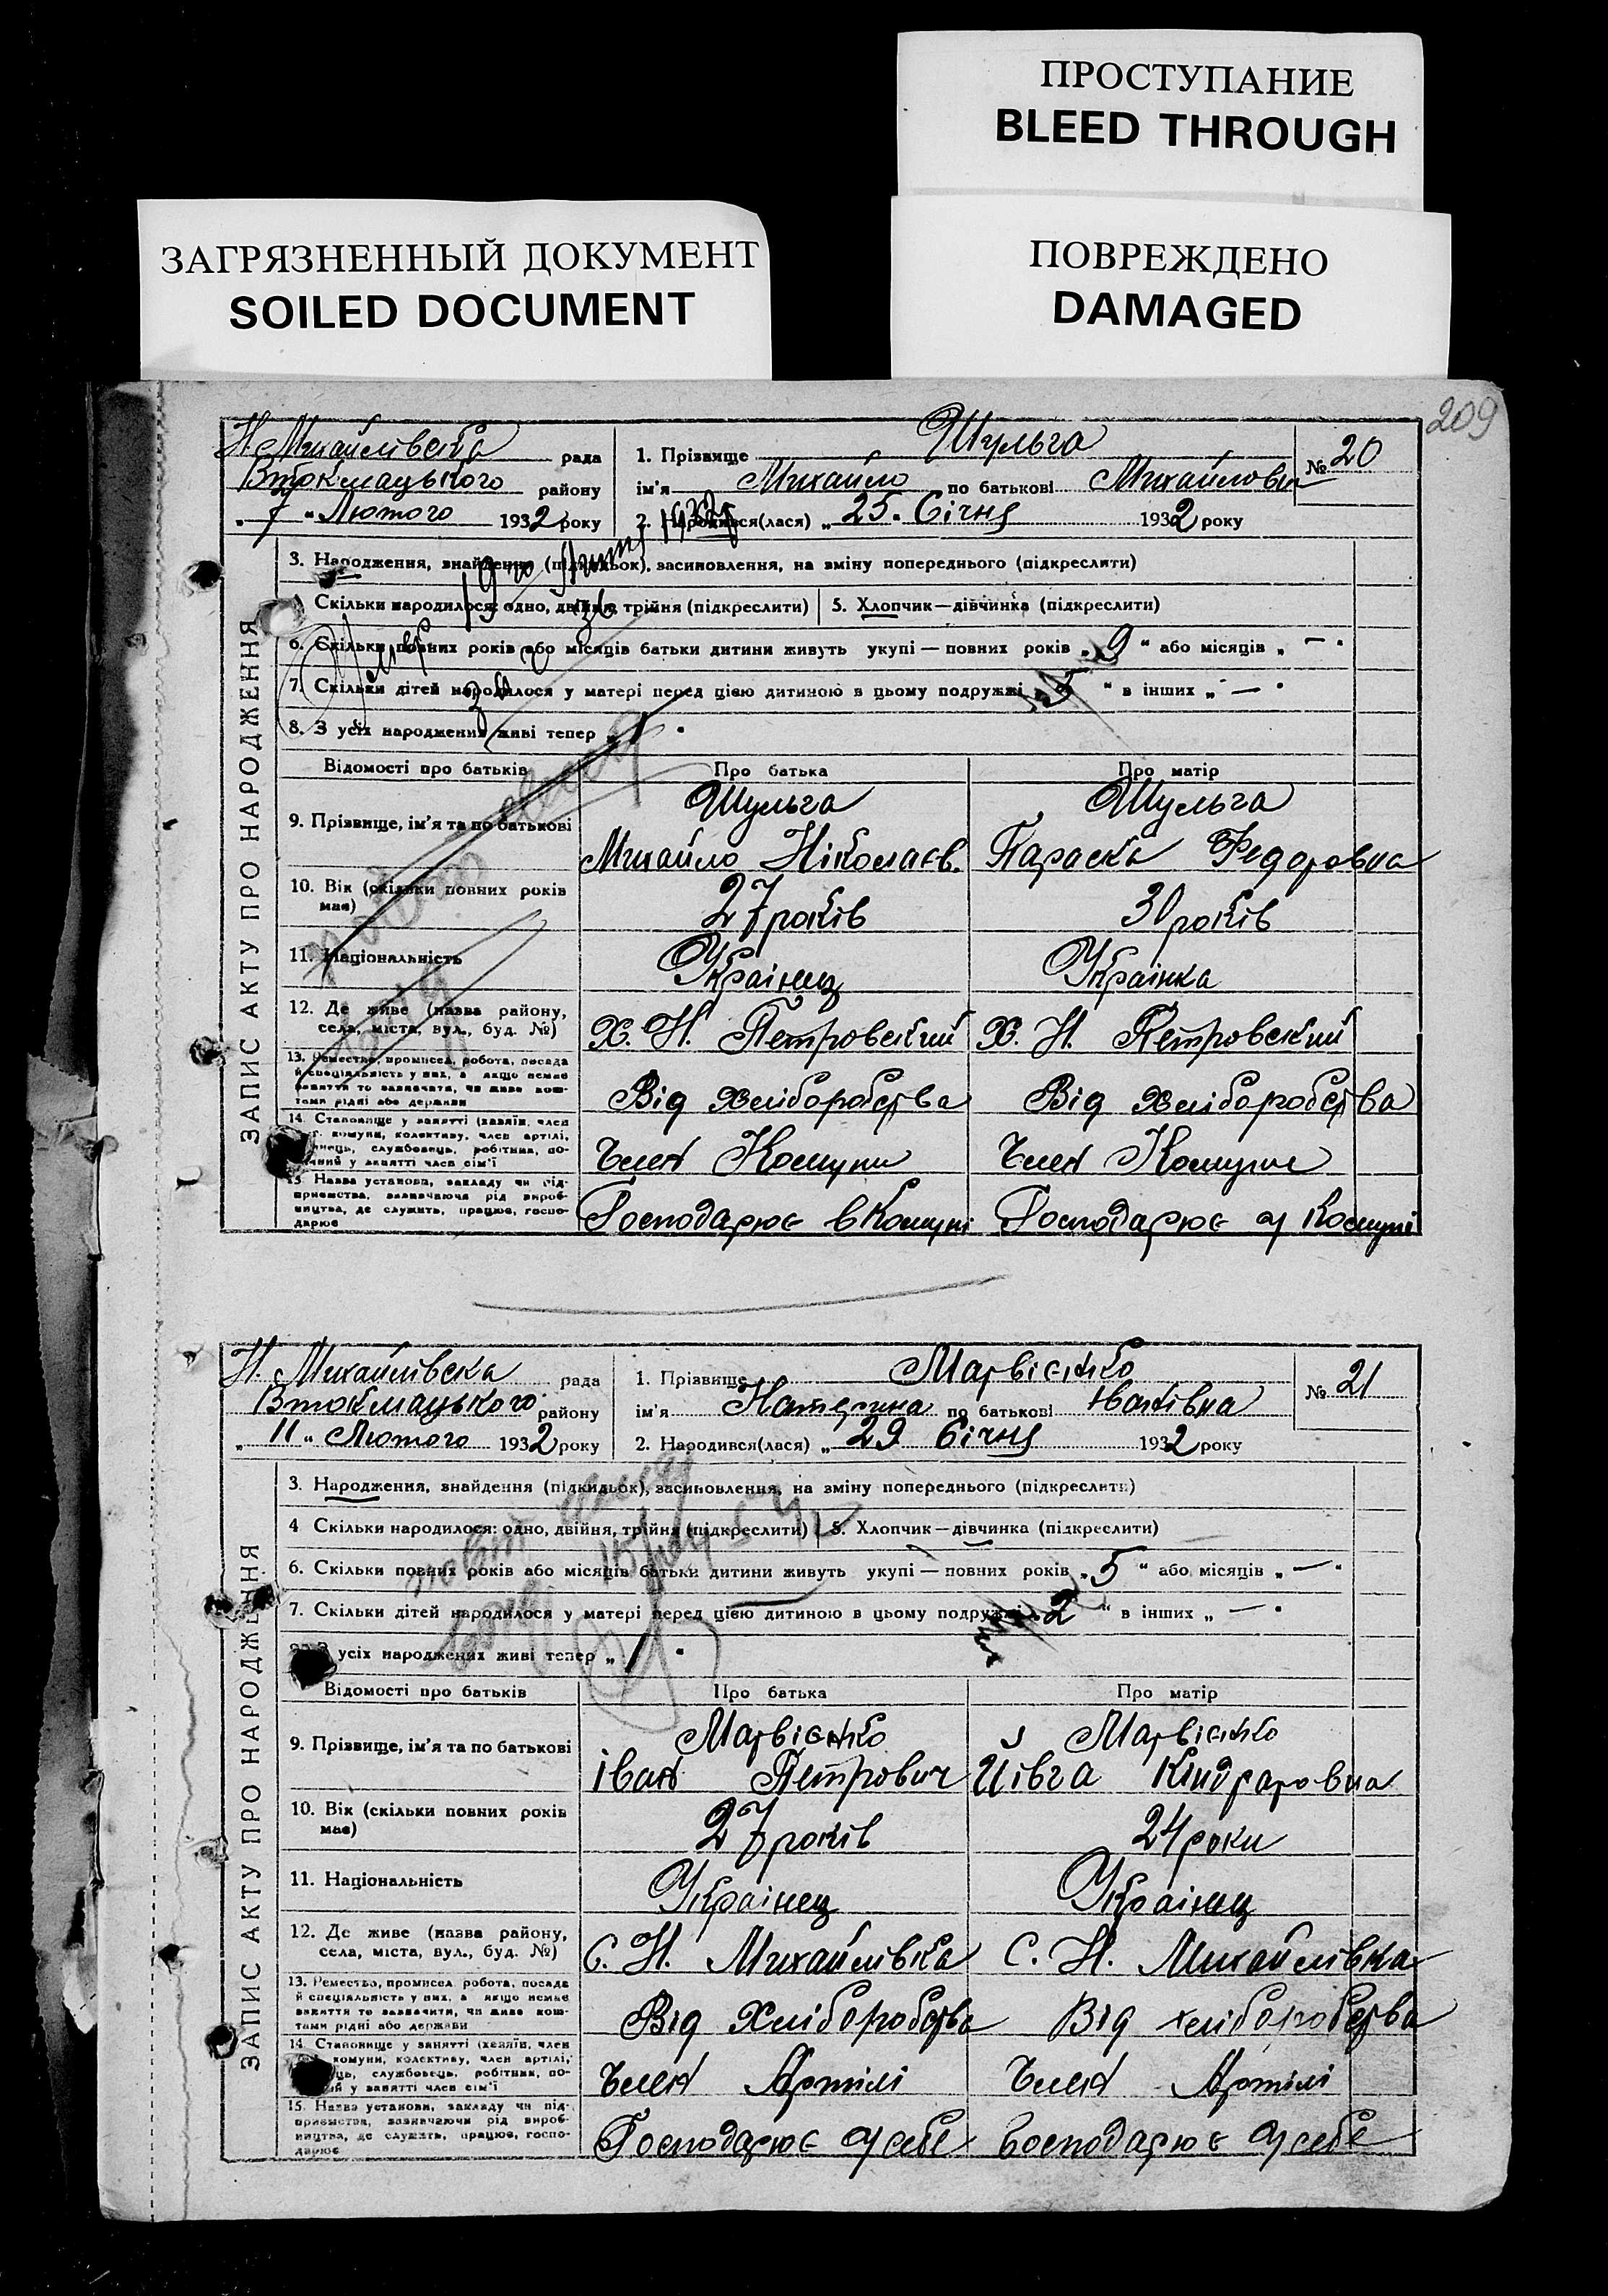 ПРОСТУПАНИЕ
BLEED THROUGH
ЗАГРЯЗНЕННЫЙ ДОКУМЕНТ
SOILED DOCUMENT
ПОВРЕЖДЕНО
DAMAGED
209
ЗАПИС АКТУ ПРО НАРОДЖЕННЯ
Н Михайлівська рада
Втокмацького району
„ 7 " Лютого 1932 року
1. Прізвище Шульга
ім'я Михайло по батькові Михайлович
2. Народився(лася) „ 25. Січня 1932 року
№ 20
3. Народження, знайдення (підкидьок), засиновлення, на зміну попереднього (підкреслити)
Скільки народилося: одно, двійня, трійня (підкреслити) 5. Хлопчик—дівчинка (підкреслити)
6. Скільки повних років або місяців батьки дитини живуть укупі — повних років „ 9 " або місяців „ — "
7. Скільки дітей народилося у матері перед цією дитиною в цьому подружжі „ 5 " в інших „ — "
8. З усіх народжених живі тепер „ 1 "
Умер 19го
Відомості про батьків Про батька Про матір
9. Прізвище, ім'я та по батькові
Шульга Шульга
Михайло Ніколаєв. Параска Федоровна
10. Вік (скільки повних років має) 27 років 30 років
11. Національність Українец Українка
12. Де живе (назва району, села, міста, вул., буд. №) Х. Н. Петровский Х. Н. Петровский
13. Ремество, промисел, робота, посада й спеціяльність у них, а якщо немає заняття то зазначити, чи живе коштами рідні або держави
Від хліборобства Від хліборобства
14. Становище у занятті (хазяїн, член комуни, колективу, член артілі, службовець, робітник, у занятті член сім'ї
Член Комуни Член Комуни
15. Назва установи, закладу чи підприємства, зазначаючи рід виробництва, де служить, працює, господарює
Господарює в Комуні Господарює у Комуні
ЗАПИС АКТУ ПРО НАРОДЖЕННЯ
Н. Михайлівська рада
Втокмацького району
„ 11 " Лютого 1932 року
1. Прізвище Матвієнко
ім'я Катерина по батькові Іванівна
2. Народився(лася) „ 29 Січня 1932 року
№ 21
3. Народження, знайдення (підкидьок), засиновлення, на зміну попереднього (підкреслити)
4 Скільки народилося: одно, двійня, трійня (підкреслити) 5. Хлопчик—дівчинка (підкреслити)
6. Скільки повних років або місяців батьки дитини живуть укупі — повних років „ 5 " або місяців „ — "
7. Скільки дітей народилося у матері перед цією дитиною в цьому подружжі „ 2 " в інших „ — "
усіх народжених живі тепер „ 1 "
Відомості про батьків Про батька Про матір
9. Прізвище, ім'я та по батькові
Матвієнко Матвієнко
Іван Петрович Йівга Кіндратовна
10. Вік (скільки повних років має) 27 років 24 роки
11. Національність Українец Українец
12. Де живе (назва району, села, міста, вул., буд. №) С. Н. Михайлівка С. Н. Михайлівка
13. Ремество, промисел, робота, посада й спеціяльність у них, а якщо немає заняття то зазначити, чи живе коштами рідні або держави
Від Хліборобства Від хліборобства
14. Становище у занятті (хазяїн, член комуни, колективу, член артілі, службовець, робітник, у занятті член сім'ї
Член Артілі Член Артілі
15. Назва установи, закладу чи підприємства, зазначаючи рід виробництва, де служить, працює, господарює
Господарює у себе Господарює у себе